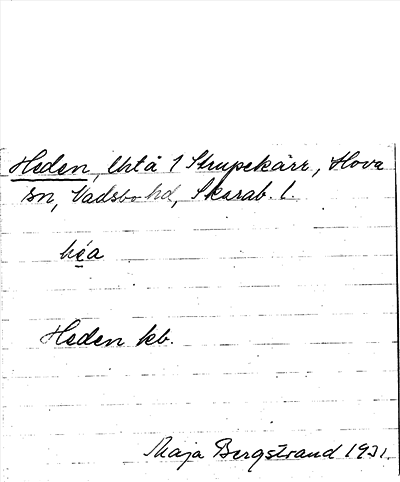 Heden, lht å 1 Strupekärr, Hova
sn, Vadsbo hd, Skarab. l.
héa
Heden kb.
Maja Bergstrand 1931.